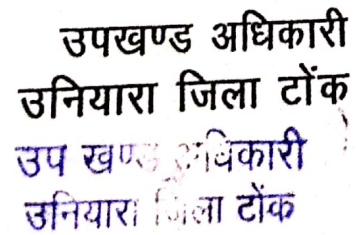 उपखण्ड अधिकारी
उनियारा जिला टोंक
उप खण्ड अधिकारी
उनियारा जिला टोंक